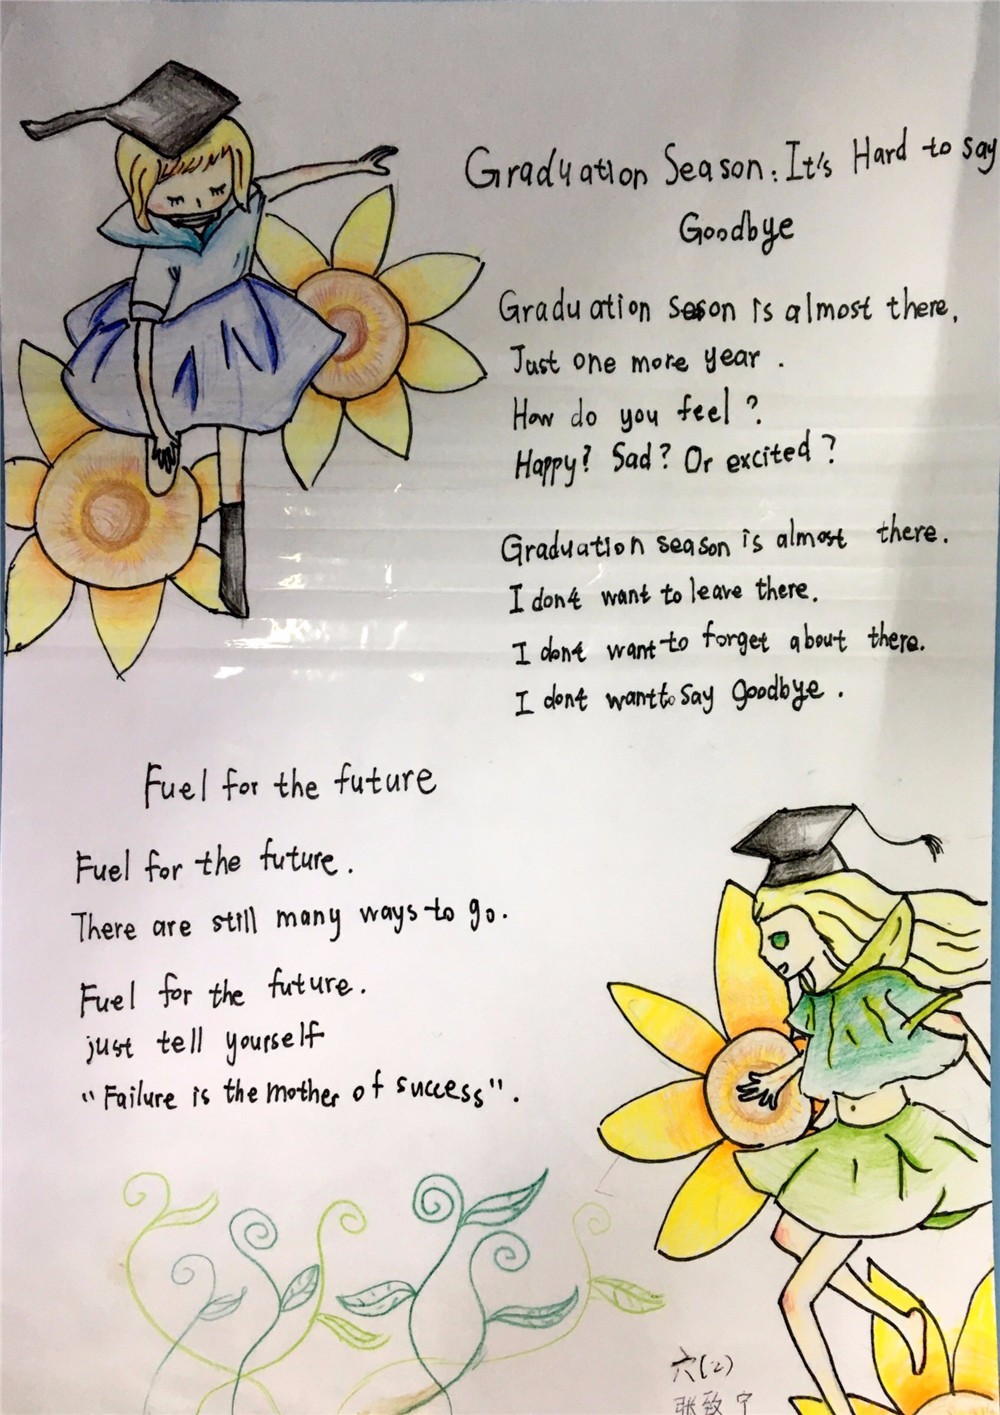 Graduation Season: It's Hard to say
Goodbye
Graduation seson is almost there,
Just one more year.
How do you feel?
Happy? Sad? Or excited?
Graduation season is almost there.
I dont want to leave there.
I dont want to forget about there.
I dont want to say goodbye.
Fuel for the future
Fuel for the future.
There are still many ways to go.
Fuel for the future.
just tell yourself
"Failure is the mother of success".
六(2)
张致宁